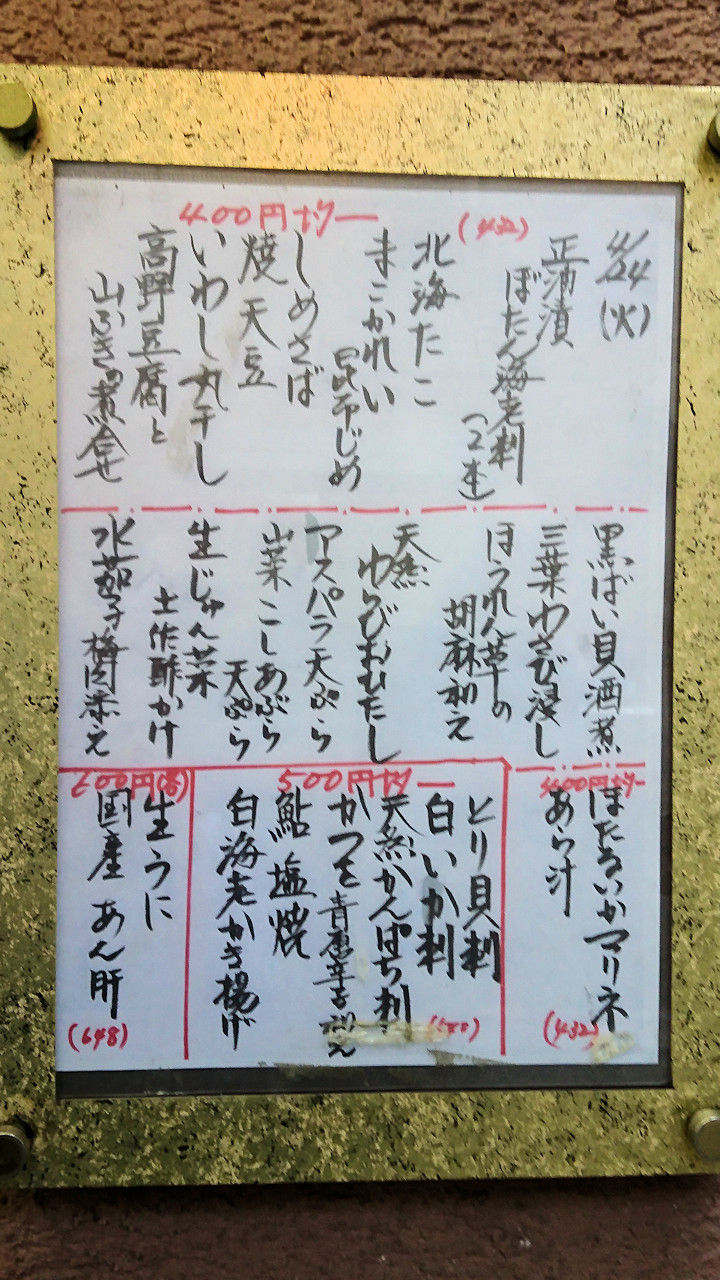 4/24(火)
400円均一
(432)
正油漬
ぼたん海老刺
(2本)
北海たこ
まこがれい
昆布じめ
しめさば
焼天豆
いわし丸干し
高野豆腐と
山ぶきの煮合せ
黒ばい貝酒煮
三葉わさび浸し
ほうれん草の
胡麻和え
天然
わらびおひたし
アスパラ天ぷら
山菜こしあぶら
天ぷら
生じゅん菜
土佐酢かけ
水茄子梅肉添え
400円均一
ほたるいかマリネ
あら汁
(432)
500円均一
とり貝刺
白いか刺
天然かんぱち刺
かつを青唐辛子和え
鮎塩焼
白海老かき揚げ
(540)
600円(各)
生うに
国産あん肝
(648)